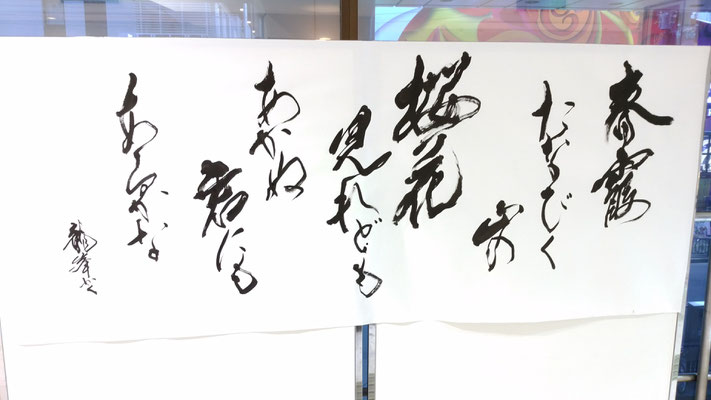 春霞
たなびく
山の
櫻花
見れども
あかぬ
君にも
あるかな
龍峯かく